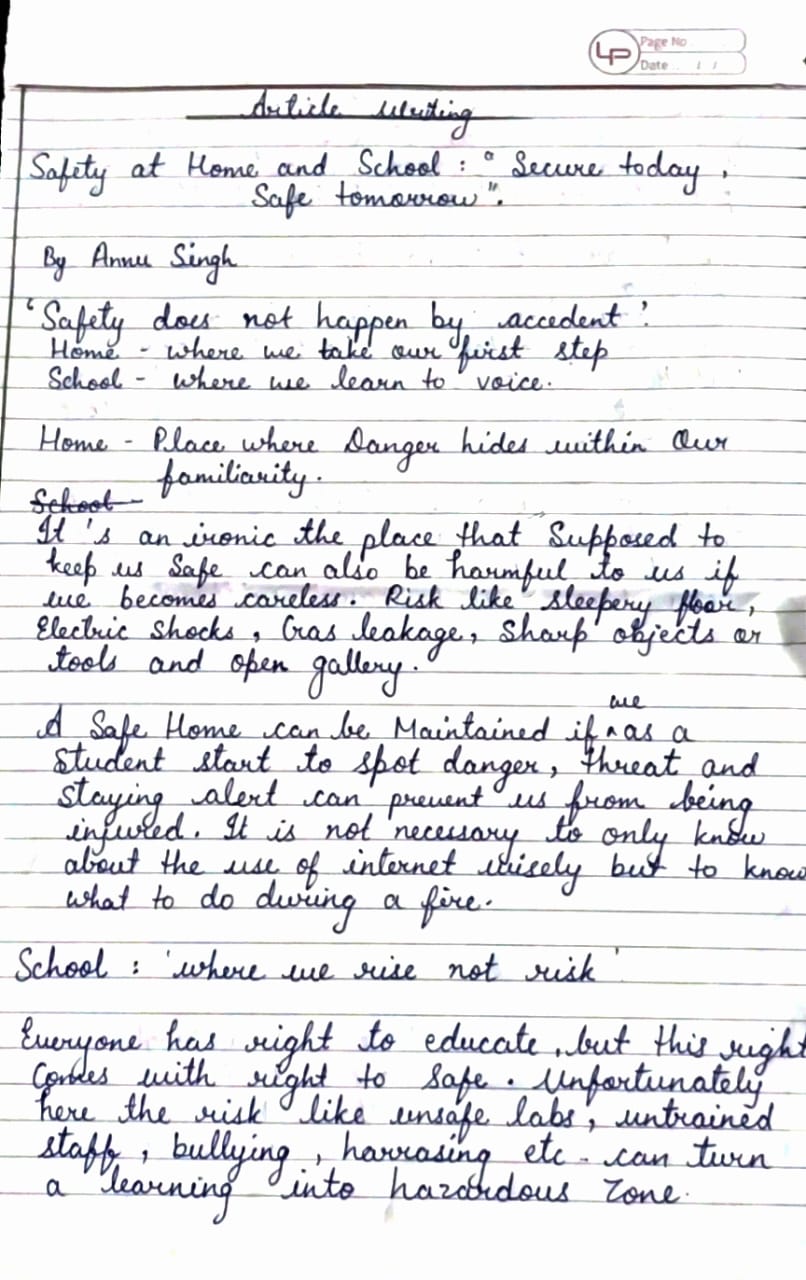 LP Page No
Date / /
Article Writing
Safety at Home and School : " Secure today ,
Safe tomorrow".
By Annu Singh
'Safety does not happen by accedent'.
Home - where we take our first step
School - where we learn to voice.
Home - Place where Danger hides within Our
familiarity.
School -
It 's an ironic the place that Supposed to
keep us Safe can also be harmful to us if
we becomes careless. Risk like sleepery floor,
Electric Shocks, Gas leakage, Sharp objects or
tools and open gallery.
we
A Safe Home can be Maintained if ^ as a
Student start to spot danger, threat and
staying alert can prevent us from being
injured. It is not necessary to only know
about the use of internet wisely but to know
what to do during a fire.
School : 'where we rise not risk'
Everyone has right to educate, but this right
Comes with right to safe. Unfortunately
here the risk like unsafe labs, untrained
staff, bullying, harrasing etc. can turn
a learning into hazardous Zone.